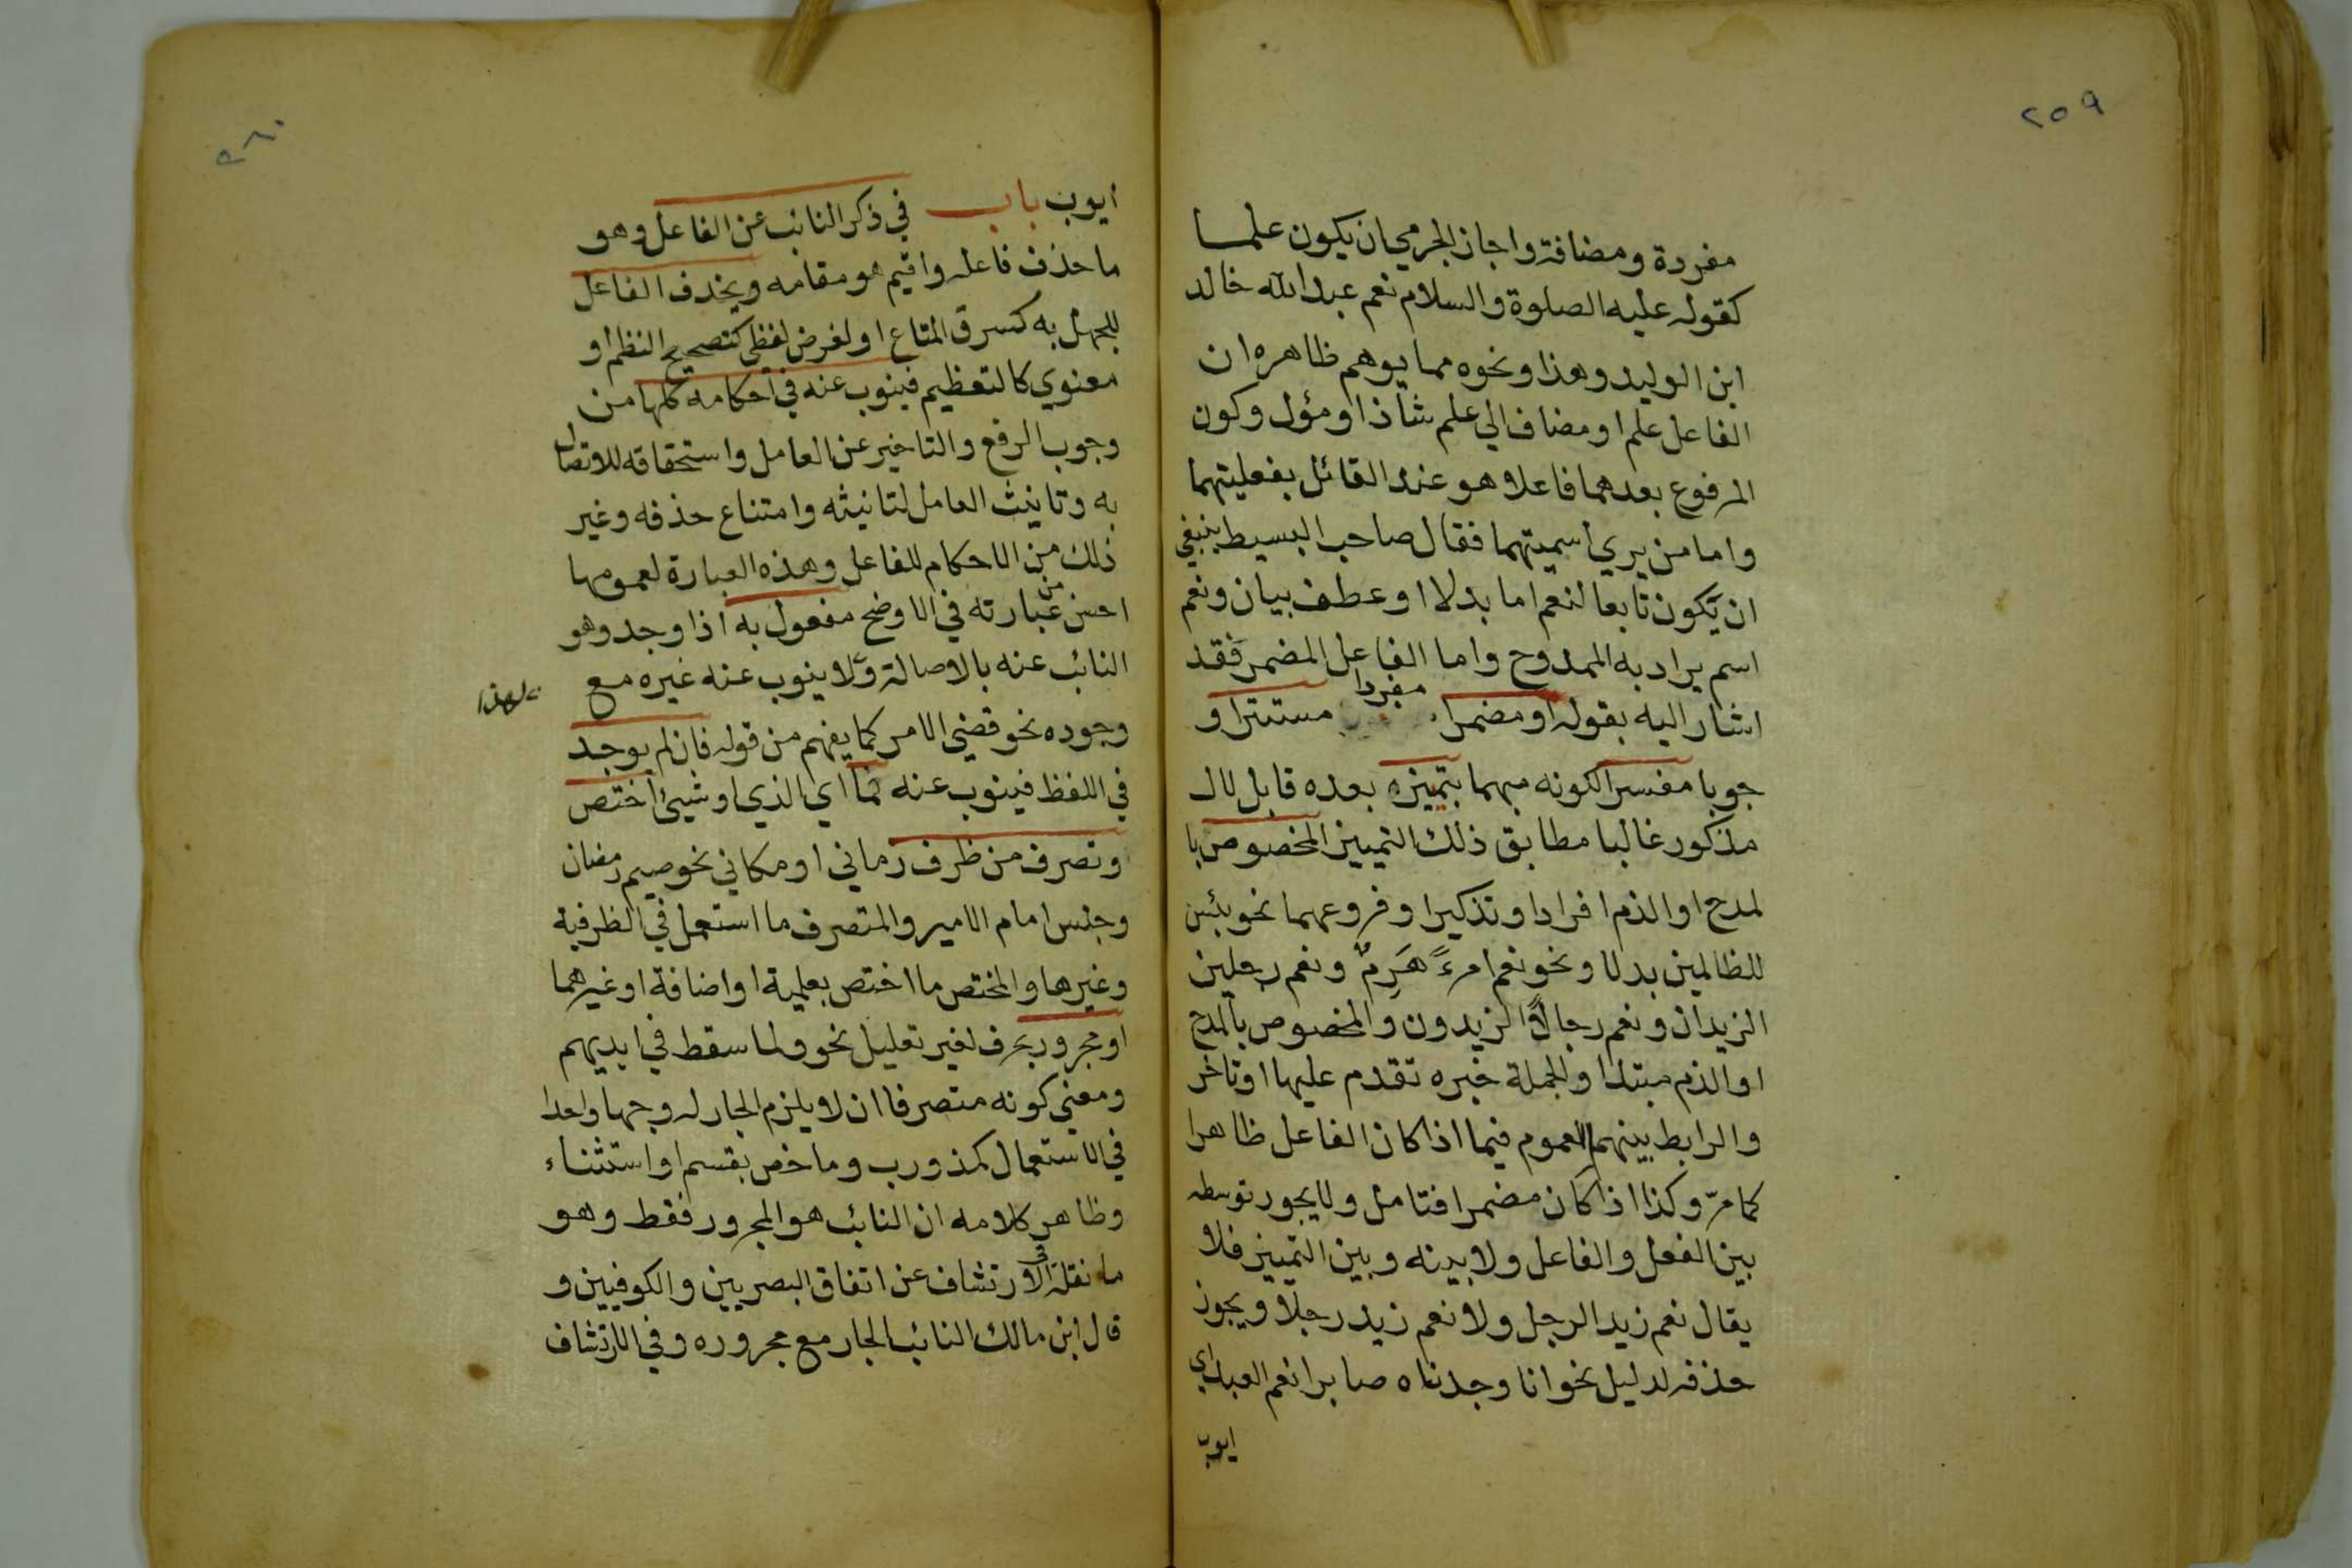 ٢٥٩
مفردة ومضافة واجاز الجرمي ان يكون علما
كقوله عليه الصلوة والسلام نعم عبد الله خالد
ابن الوليد وهذا ونحوه مما يوهم ظاهره ان
الفاعل علم او مضاف الي علم شاذ او مؤل وكون
المرفوع بعدهما فاعلا هو عند القائل بفعليتهما
واما من يري اسميتهما فقال صاحب البسيط ينبغي
ان يكون تابعا لنعم اما بدلا او عطف بيان ونعم
اسم يراد به الممدوح واما الفاعل المضمر فقد
اشار اليه بقوله او مضمرا مفردا مستترا و
جوبا مفسرا لكونه مبهما بتميزه بعده قابل لال
مذكور غالبا مطابق ذلك التمييز المخصوص با
لمدح او الذم افرادا وتذكيرا وفروعهما نحو بئس
للظالمين بدلا ونحو نعم امرءً هَرِمٌ ونعم رجلين
الزيدان ونعم رجالًا الزيدون والمخصوص بالمدح
او الذم مبتدا والجملة خبره تقدم عليها او تاخر
والرابط بينهما العموم فيما اذا كان الفاعل ظاهرا
كما مرّ وكذا اذا كان مضمرا فتامل ولا يجوز توسطه
بين الفعل والفاعل ولا بينه وبين التمييز فلا
يقال نعم زيد الرجل ولا نعم زيد رجلا ويجوز
حذفه لدليل نحو انا وجدناه صابرا نعم العبد اي
ايوب
٢٦٠
ايوب باب في ذكر النائب عن الفاعل وهو
ما حذف فاعله واقيم هو مقامه ويحذف الفاعل
للجهل به كسرق المتاع او لغرض لفظي كتصحيح النظم او
معنوي كالتعظيم فينوب عنه في احكامه كلها من
وجوب الرفع والتاخير عن العامل واستحقاقه للاتصال
به وتانيث العامل لتانيثه وامتناع حذفه وغير
ذلك من الاحكام للفاعل وهذه العبارة لعمومها
احسن من عبارته في الاوضح مفعول به اذا وجد وهو
النائب عنه بالاصالة ولا ينوب عنه غيره مع
ولهذا
وجوده نحو قضي الامر كما يفهم من قوله فان لم يوجد
في اللفظ فينوب عنه ما اي الذي او شيئ اختص
وتصرف من ظرف زماني او مكاني نحو صيم رمضان
وجلس امام الامير والمتصرف ما استعمل في الظرفية
وغيرها والمختص ما اختص بعلمية او اضافة او غيرهما
او مجرور بحرف لغير تعليل نحو ولما سقط في ايديهم
ومعني كونه متصرفا ان لا يلزم الجار له وجها واحدا
في الاستعمال كمذ ورب وما خص بقسم او استثناء
وظاهر كلامه ان النائب هو المجرور فقط وهو
ما نقله في الارتشاف عن اتفاق البصريين والكوفيين و
قال ابن مالك النائب الجار مع مجروره وفي الارتشاف